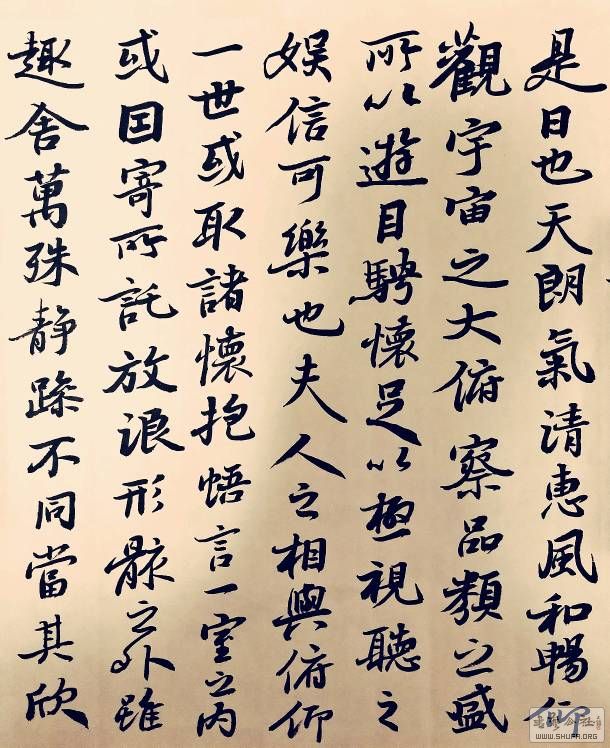 是日也天朗氣清恵風和暢仰
觀宇宙之大俯察品類之盛
所以遊目騁懷足以極視聽之
娯信可樂也夫人之相與俯仰
一世或取諸懷抱悟言一室之内
或因寄所託放浪形骸之外雖
趣舍萬殊静躁不同當其欣
WWW.SHUFA.ORG